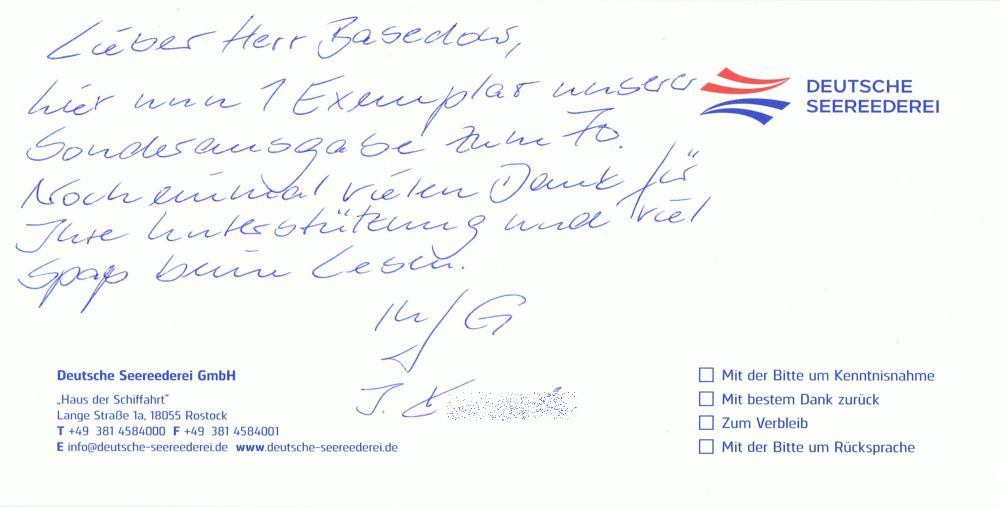 Lieber Herr Basedow,
hier nun 1 Exemplar unserer
Sonderausgabe zum 70.
Noch einmal vielen Dank für
Ihre Unterstützung und viel
Spaß beim Lesen.
J. K
DEUTSCHE
SEEREEDEREI
Deutsche Seereederei GmbH
„Haus der Schiffahrt“
Lange Straße 1a, 18055 Rostock
T +49 381 4584000 F +49 381 4584001
E info@deutsche-seereederei.de www.deutsche-seereederei.de
Mit der Bitte um Kenntnisnahme
Mit bestem Dank zurück
Zum Verbleib
Mit der Bitte um Rücksprache